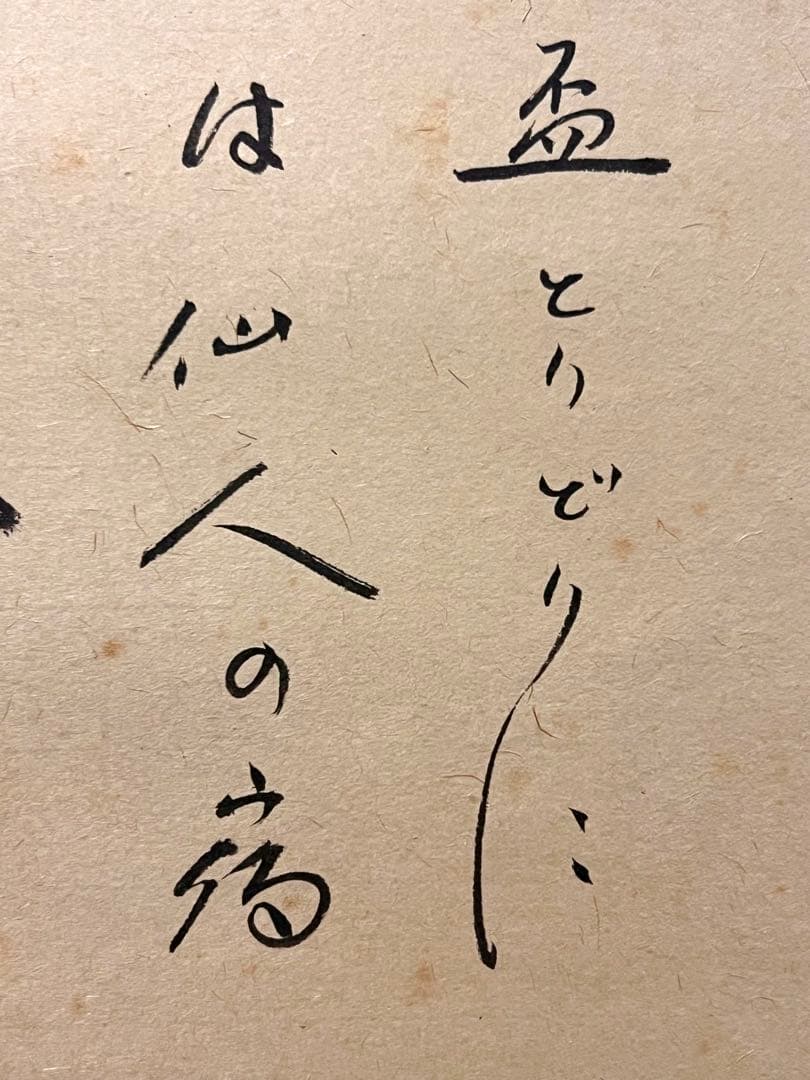 盃とりどりに
は仙人の宿